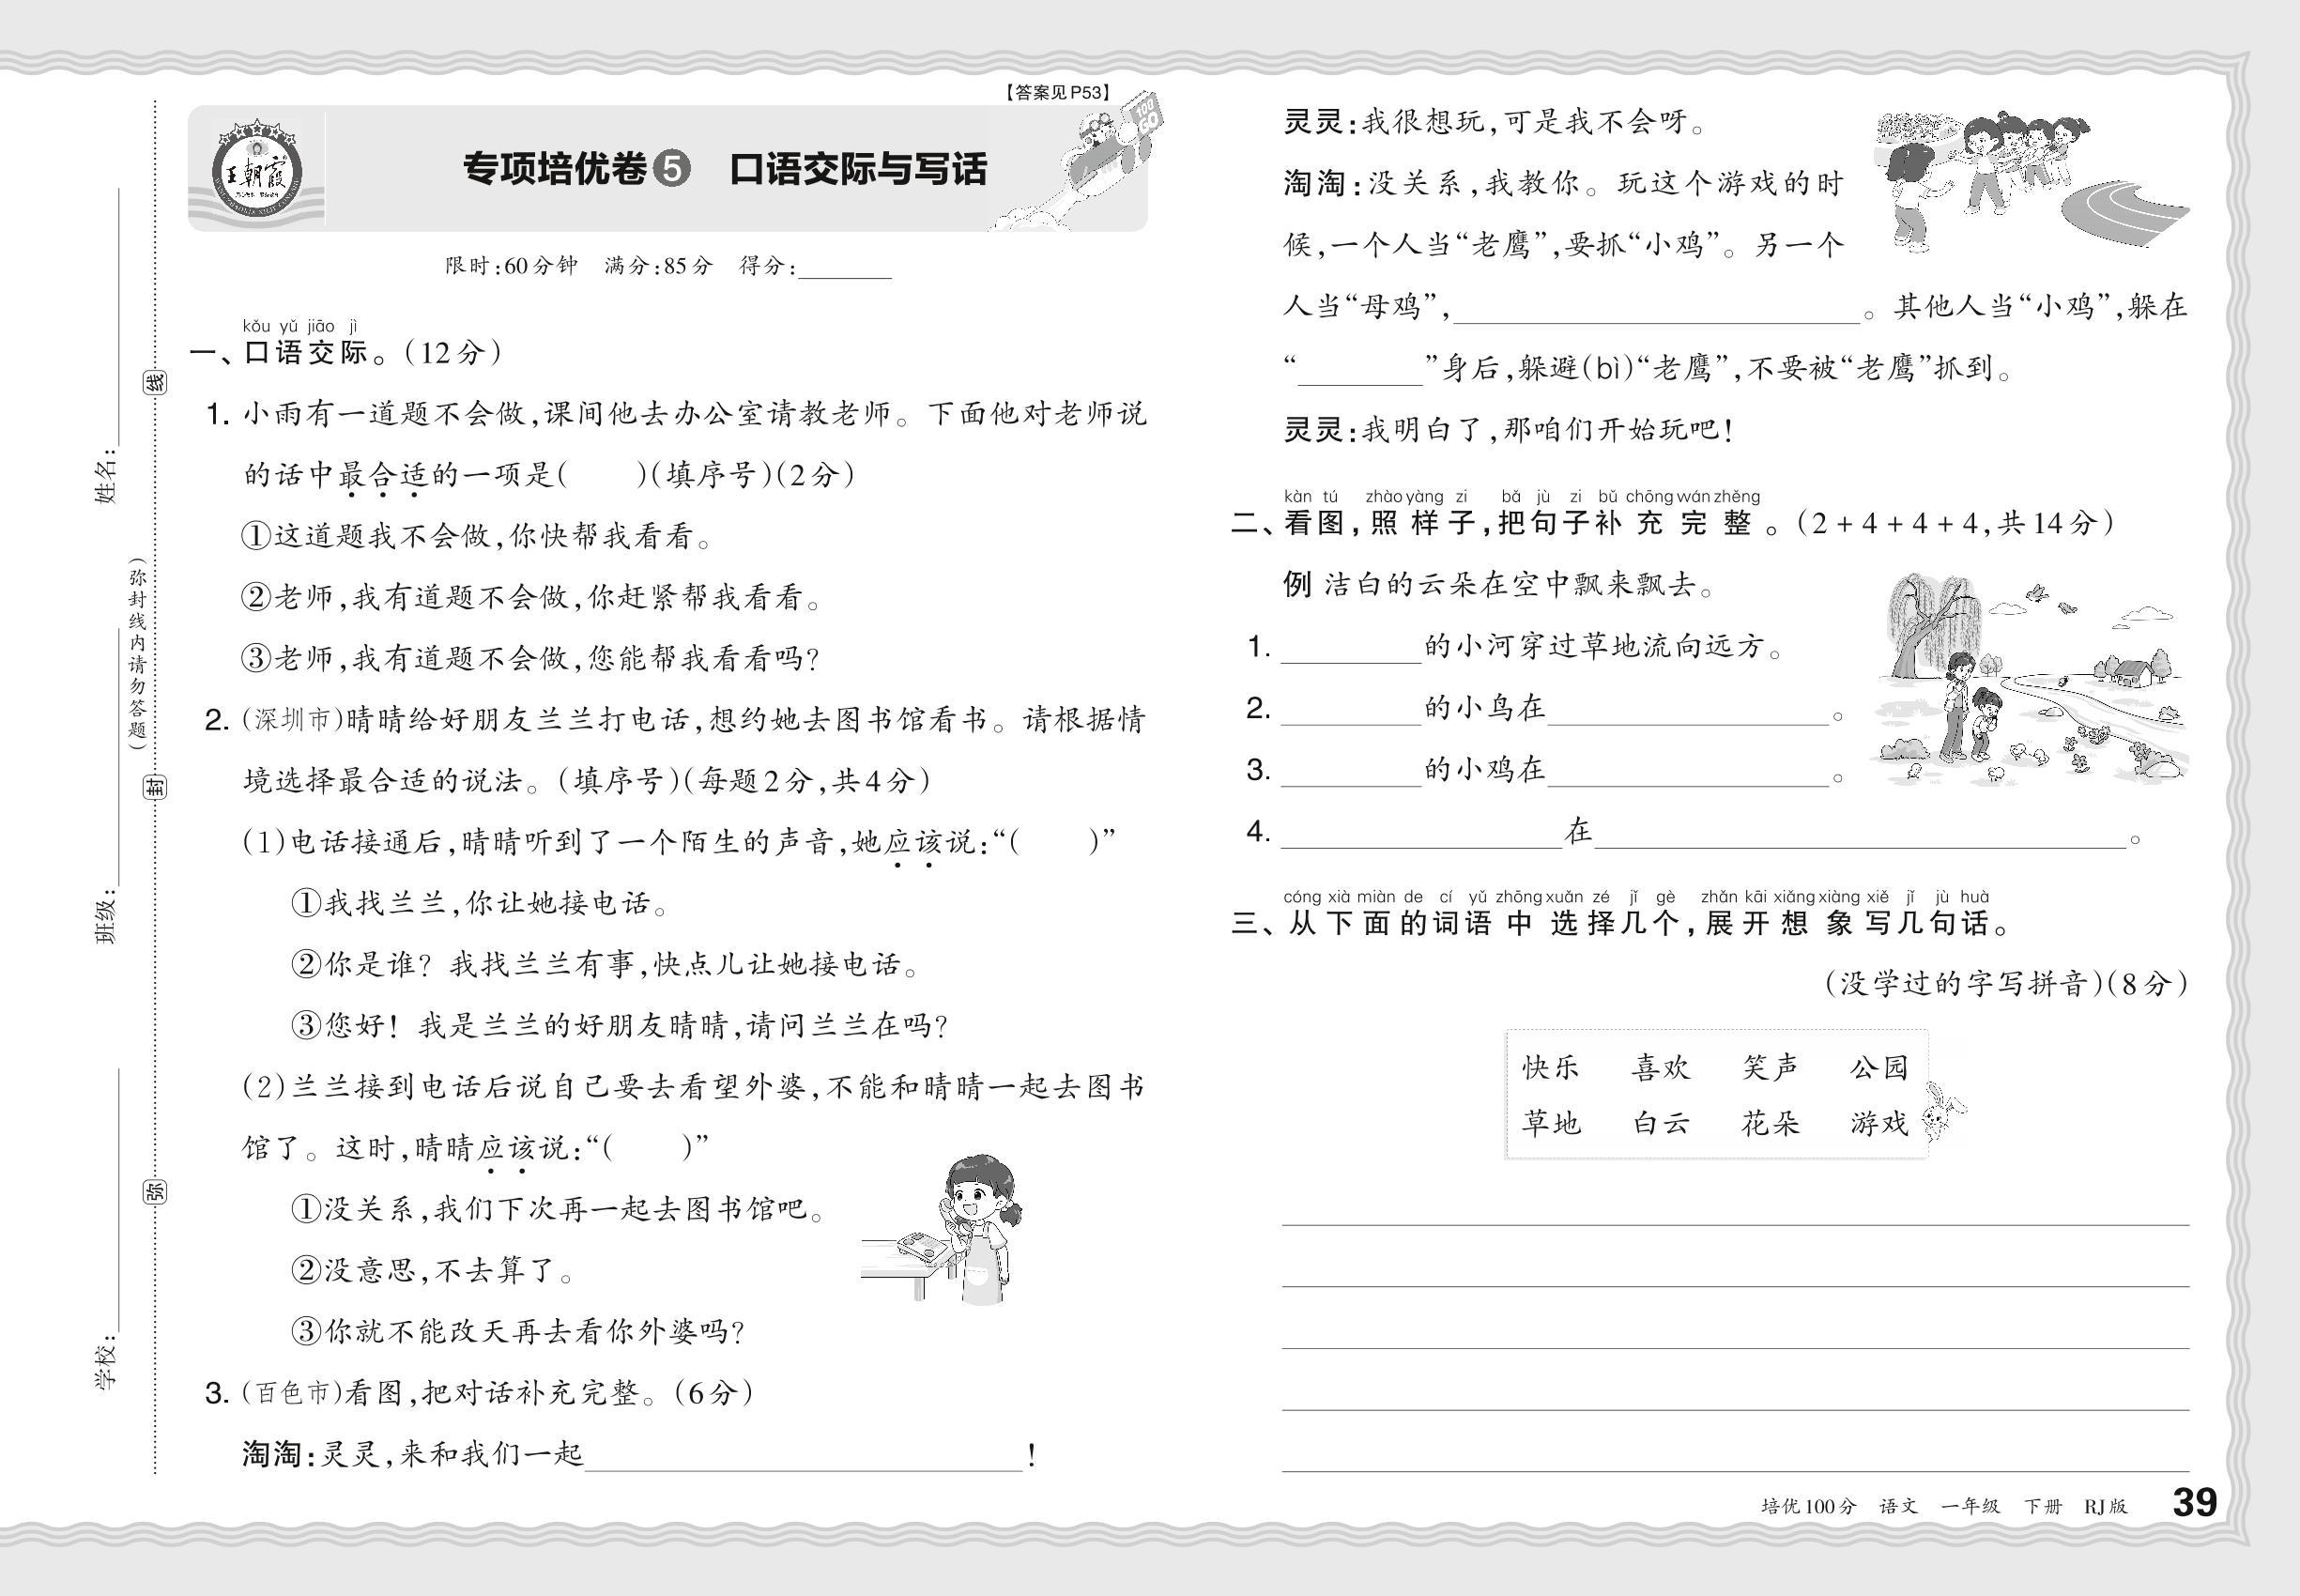 【答案见P53】
王朝霞
专项培优卷5 口语交际与写话
限时:60分钟 满分:85分 得分:
kǒu yǔ jiāo jì
一、口语交际。(12分)
1. 小雨有一道题不会做,课间他去办公室请教老师。下面他对老师说
的话中最合适的一项是( )(填序号)(2分)
①这道题我不会做,你快帮我看看。
②老师,我有道题不会做,你赶紧帮我看看。
③老师,我有道题不会做,您能帮我看看吗?
2. (深圳市)晴晴给好朋友兰兰打电话,想约她去图书馆看书。请根据情
境选择最合适的说法。(填序号)(每题2分,共4分)
(1)电话接通后,晴晴听到了一个陌生的声音,她应该说:“( )”
①我找兰兰,你让她接电话。
②你是谁?我找兰兰有事,快点儿让她接电话。
③您好!我是兰兰的好朋友晴晴,请问兰兰在吗?
(2)兰兰接到电话后说自己要去看望外婆,不能和晴晴一起去图书
馆了。这时,晴晴应该说:“( )”
①没关系,我们下次再一起去图书馆吧。
②没意思,不去算了。
③你就不能改天再去看你外婆吗?
3. (百色市)看图,把对话补充完整。(6分)
淘淘:灵灵,来和我们一起 !
灵灵:我很想玩,可是我不会呀。
淘淘:没关系,我教你。玩这个游戏的时
候,一个人当“老鹰”,要抓“小鸡”。另一个
人当“母鸡”, 。其他人当“小鸡”,躲在
“ ”身后,躲避(bì)“老鹰”,不要被“老鹰”抓到。
灵灵:我明白了,那咱们开始玩吧!
kàn tú zhào yàng zi bǎ jù zi bǔ chōng wán zhěng
二、看图,照样子,把句子补充完整。(2+4+4+4,共14分)
例 洁白的云朵在空中飘来飘去。
1. 的小河穿过草地流向远方。
2. 的小鸟在 。
3. 的小鸡在 。
4. 在 。
cóng xià miàn de cí yǔ zhōng xuǎn zé jǐ gè zhǎn kāi xiǎng xiàng xiě jǐ jù huà
三、从下面的词语中选择几个,展开想象写几句话。
(没学过的字写拼音)(8分)
快乐 喜欢 笑声 公园
草地 白云 花朵 游戏
培优100分 语文 一年级 下册 RJ版 39
姓名:
班级:
学校:
(弥封线内请勿答题)
线
封
弥